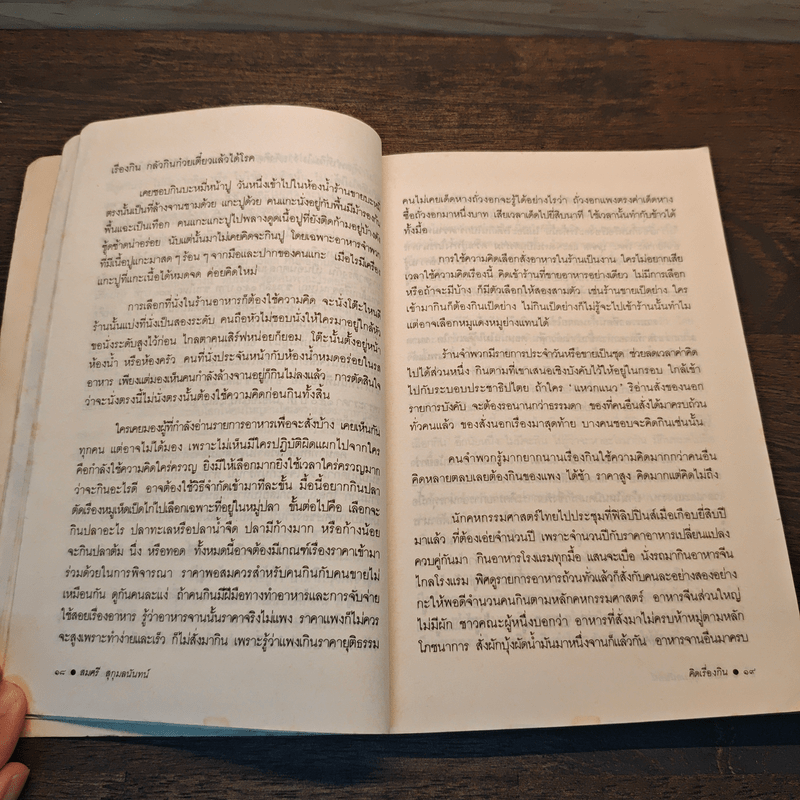 เรื่องกิน กลัวกินก๋วยเตี๋ยวแล้วได้โรค
เคยชอบกินบะหมี่หน้าปู วันหนึ่งเข้าไปในห้องน้ำร้านขายบะหมี่
ตรงนั้นเป็นที่ล้างจานชามด้วย แกะปูด้วย คนแกะนั่งอยู่กับพื้นมีม้ารองก้น
พื้นแฉะเป็นเทือก คนแกะแกะปูไปพลางดูดเนื้อปูที่ยังติดก้ามอยู่บ้าง
ซู้ดซ้าดน่าอร่อย นับแต่นั้นมาไม่เคยคิดจะกินปู โดยเฉพาะอาหารจำพวก
ที่มีเนื้อปูแกะมาสด ๆ ร้อน ๆ จากมือและปากของคนแกะ เมื่อไรมีเครื่อง
แกะปูที่แกะเนื้อได้หมดจด ค่อยคิดใหม่
การเลือกที่นั่งในร้านอาหารก็ต้องใช้ความคิด จะนั่งโต๊ะไหนมี
ร้านนั้นแบ่งที่นั่งเป็นสองระดับ คนถือหัวไม่ชอบนั่งให้ใครมาอยู่ใกล้หัว
ขอนั่งระดับสูงไว้ก่อน ไกลตาคนเสิร์ฟหน่อยก็ยอม โต๊ะนั้นตั้งอยู่หน้า
ห้องน้ำ หรือห้องครัว คนที่นั่งประจันหน้ากับห้องน้ำหมดอร่อยในรส
อาหาร เพียงแต่มองเห็นคนกำลังล้างจานอยู่ก็กินไม่ลงแล้ว การตัดสินใจ
ว่าจะนั่งตรงนี้ไม่นั่งตรงนั้นต้องใช้ความคิดก่อนกินทั้งสิ้น
ใครเคยมองผู้ที่กำลังอ่านรายการอาหารเพื่อจะสั่งบ้าง เคยเห็นกัน
ทุกคน แต่อาจไม่ได้มอง เพราะไม่เห็นมีใครปฏิบัติผิดแผกไปจากใคร
คือกำลังใช้ความคิดใคร่ครวญ ยิ่งมีให้เลือกมากยิ่งใช้เวลาใคร่ครวญมาก
ว่าจะกินอะไรดี อาจต้องใช้วิธีจำกัดเข้ามาทีละขั้น มื้อนี้อยากกินปลา
ตัดเรื่องหมูเห็ดเป็ดไก่ไปเลือกเฉพาะที่อยู่ในหมู่ปลา ขั้นต่อไปคือ เลือกจะ
กินปลาอะไร ปลาทะเลหรือปลาน้ำจืด ปลามีก้างมาก หรือก้างน้อย
จะกินปลาต้ม นึ่ง หรือทอด ทั้งหมดนี้อาจต้องมีเกณฑ์เรื่องราคาเข้ามา
ร่วมด้วยในการพิจารณา ราคาพอสมควรสำหรับคนกินกับคนขายไม่
เหมือนกัน ดูกันคนละแง่ ถ้าคนกินมีฝีมือทางทำอาหารและการจับจ่าย
ใช้สอยเรื่องอาหาร รู้ว่าอาหารจานนั้นราคาจริงไม่แพง ราคาแพงก็ไม่ควร
จะสูงเพราะทำง่ายและเร็ว ก็ไม่สั่งมากิน เพราะรู้ว่าแพงเกินราคายุติธรรม
๑๘ ● สมศรี สุกุมลนันทน์
คนไม่เคยเด็ดหางถั่วงอกจะรู้ได้อย่างไรว่า ถั่วงอกแพงตรงค่าเด็ดหาง
ซื้อถั่วงอกมาหนึ่งบาท เสียเวลาเด็ดไปยี่สิบนาที ใช้เวลานั้นทำกับข้าวได้
ทั้งมื้อ
การใช้ความคิดเลือกสั่งอาหารในร้านเป็นงาน ใครไม่อยากเสีย
เวลาใช้ความคิดเรื่องนี้ คิดเข้าร้านที่ขายอาหารอย่างเดียว ไม่มีการเลือก
หรือถ้าจะมีบ้าง ก็มีตัวเลือกให้สองสามตัว เช่นร้านขายเป็ดย่าง ใคร
เข้ามากินก็ต้องกินเป็ดย่าง ไม่กินเป็ดย่างก็ไม่รู้จะไปเข้าร้านนั้นทำไม
แต่อาจเลือกหมูแดงหมูย่างแทนได้
ร้านจำพวกมีรายการประจำวันหรือขายเป็นชุด ช่วยลดเวลาค่าคิด
ไปได้ส่วนหนึ่ง กินตามที่เขาเสนอเชิงบังคับไว้ให้อยู่ในกรอบ ใกล้เข้า
ไปกับระบอบประชาธิปไตย ถ้าใคร ‘แหวกแนว’ ริอ่านสั่งของนอก
รายการบังคับ จะต้องรอนานกว่าธรรมดา ของที่คนอื่นสั่งได้มาครบถ้วน
ทั่วคนแล้ว ของสั่งนอกเรื่องมาสุดท้าย บางคนชอบจะคิดกินเช่นนั้น
คนจำพวกรู้มากยากนานเรื่องกินใช้ความคิดมากกว่าคนอื่น
คิดหลายตลบเลยต้องกินของแพง ได้ช้า ราคาสูง คิดมากแต่คิดไม่ถึง
นักคหกรรมศาสตร์ไทยไปประชุมที่ฟิลิปปินส์เมื่อเกือบยี่สิบปี
มาแล้ว ที่ต้องเอ่ยจำนวนปี เพราะจำนวนปีกับราคาอาหารเปลี่ยนแปลง
ควบคู่กันมา กินอาหารโรงแรมทุกมื้อ แสนจะเบื่อ นั่งรถมากินอาหารจีน
ไกลโรงแรม พิศดูรายการอาหารถ้วนทั่วแล้วก็สั่งกับคนละอย่างสองอย่าง
กะให้พอดีจำนวนคนกินตามหลักคหกรรมศาสตร์ อาหารจีนส่วนใหญ่
ไม่มีผัก ชาวคณะผู้หนึ่งบอกว่า อาหารที่สั่งมาไม่ครบห้าหมู่ตามหลัก
โภชนาการ สั่งผักบุ้งผัดน้ำมันมาหนึ่งจานก็แล้วกัน อาหารจานอื่นมาครบ
คิดเรื่องกิน ● ๑๙